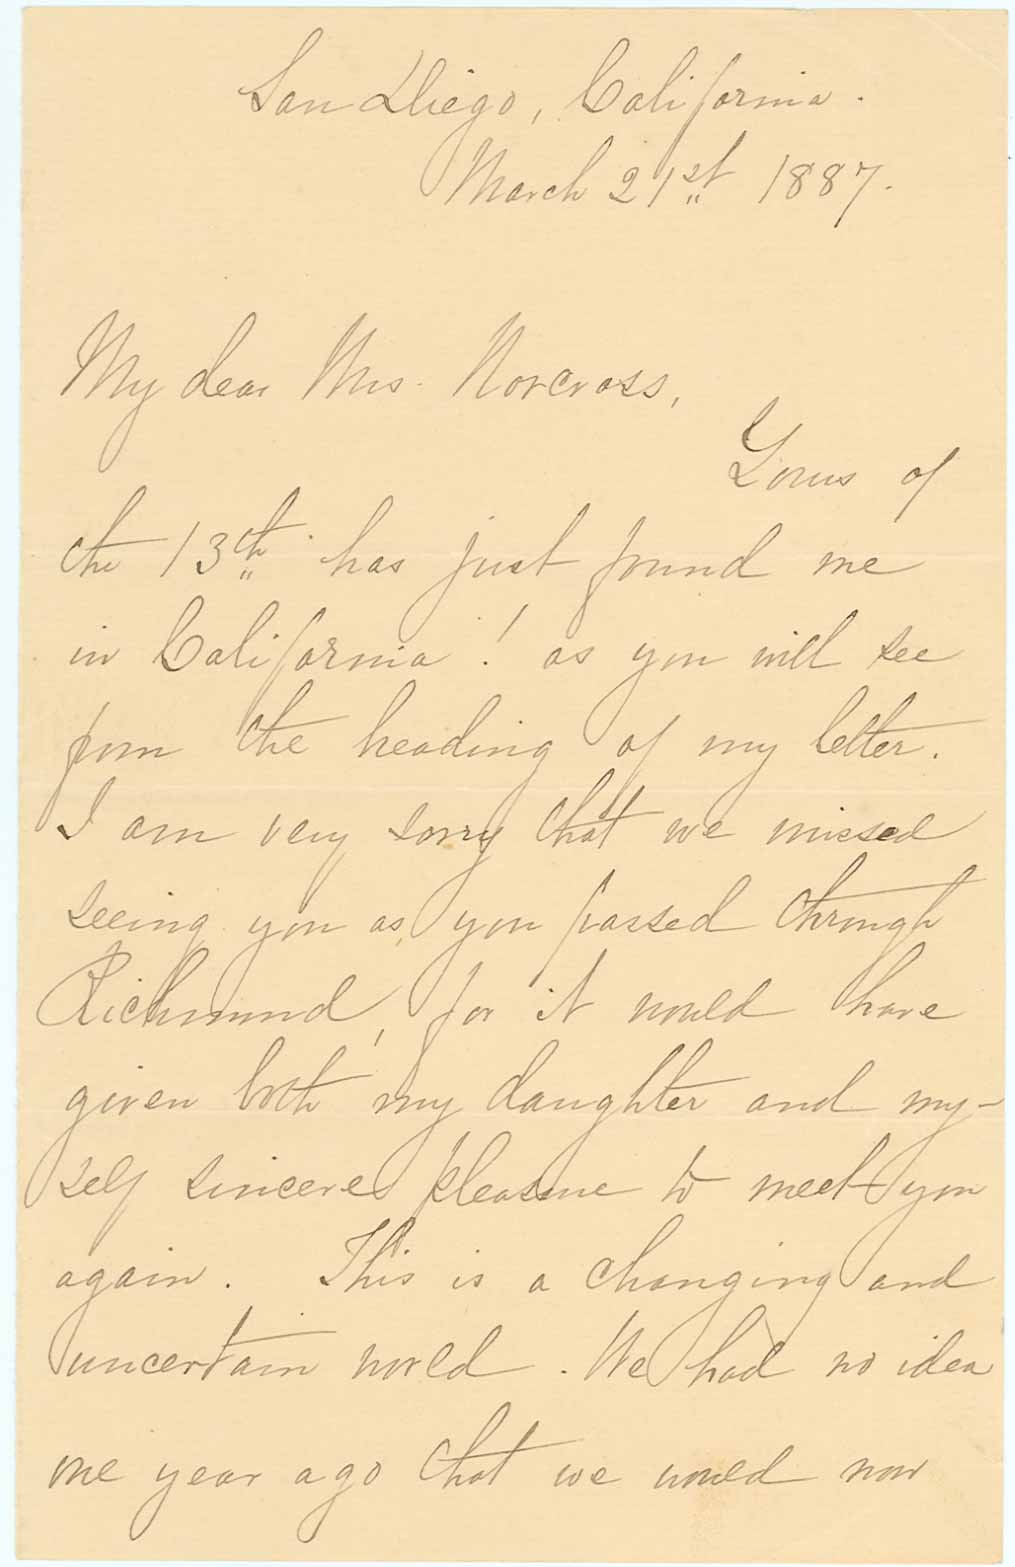 San Diego, California.
March 21st 1887.
My dear Mrs. Norcross,
Yours of
the 13th has just found me
in California! as you will see
from the heading of my letter.
I am very sorry that we missed
seeing you as you passed through
Richmond, for it would have
given both my daughter and my-
self sincere pleasure to meet you
again. This is a changing and
uncertain world. We had no idea
one year ago that we would now